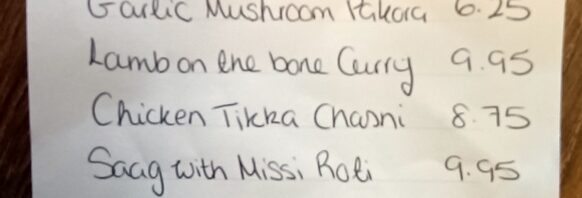 Garlic Mushroom Pakora 6.25
Lamb on the bone Curry 9.95
Chicken Tikka Chasni 8.75
Saag with Missi Roti 9.95